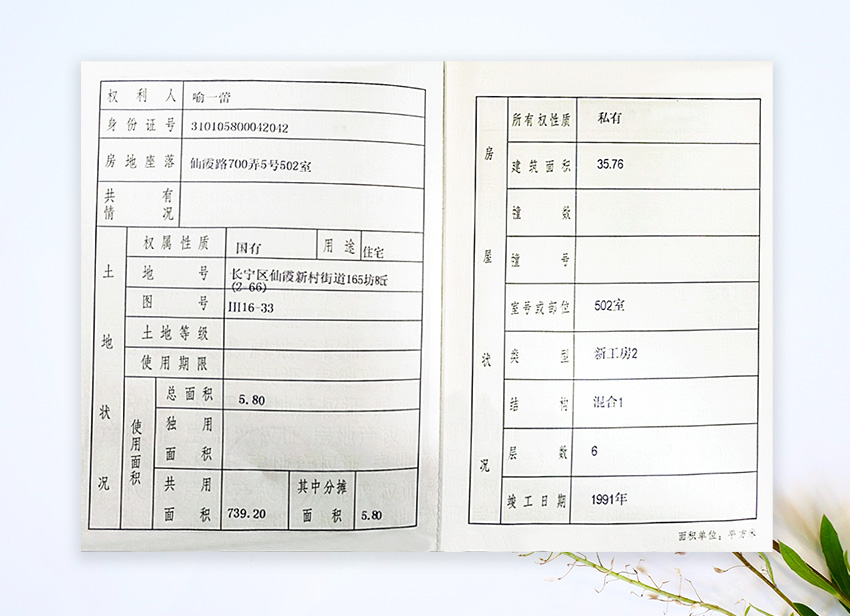 权利人 喻一蕾
身份证号 310105800042042
房地座落 仙霞路700弄5号502室
共有情况
土地状况
权属性质 国有 用途 住宅
地号 长宁区仙霞新村街道165坊8丘
(2-66)
图号 III16-33
土地等级
使用期限
使用面积
总面积 5.80
独用面积
共用面积 739.20 其中分摊面积 5.80
房屋状况
所有权性质 私有
建筑面积 35.76
幢数
幢号
室号或部位 502室
类型 新工房2
结构 混合1
层数 6
竣工日期 1991年
面积单位：平方米